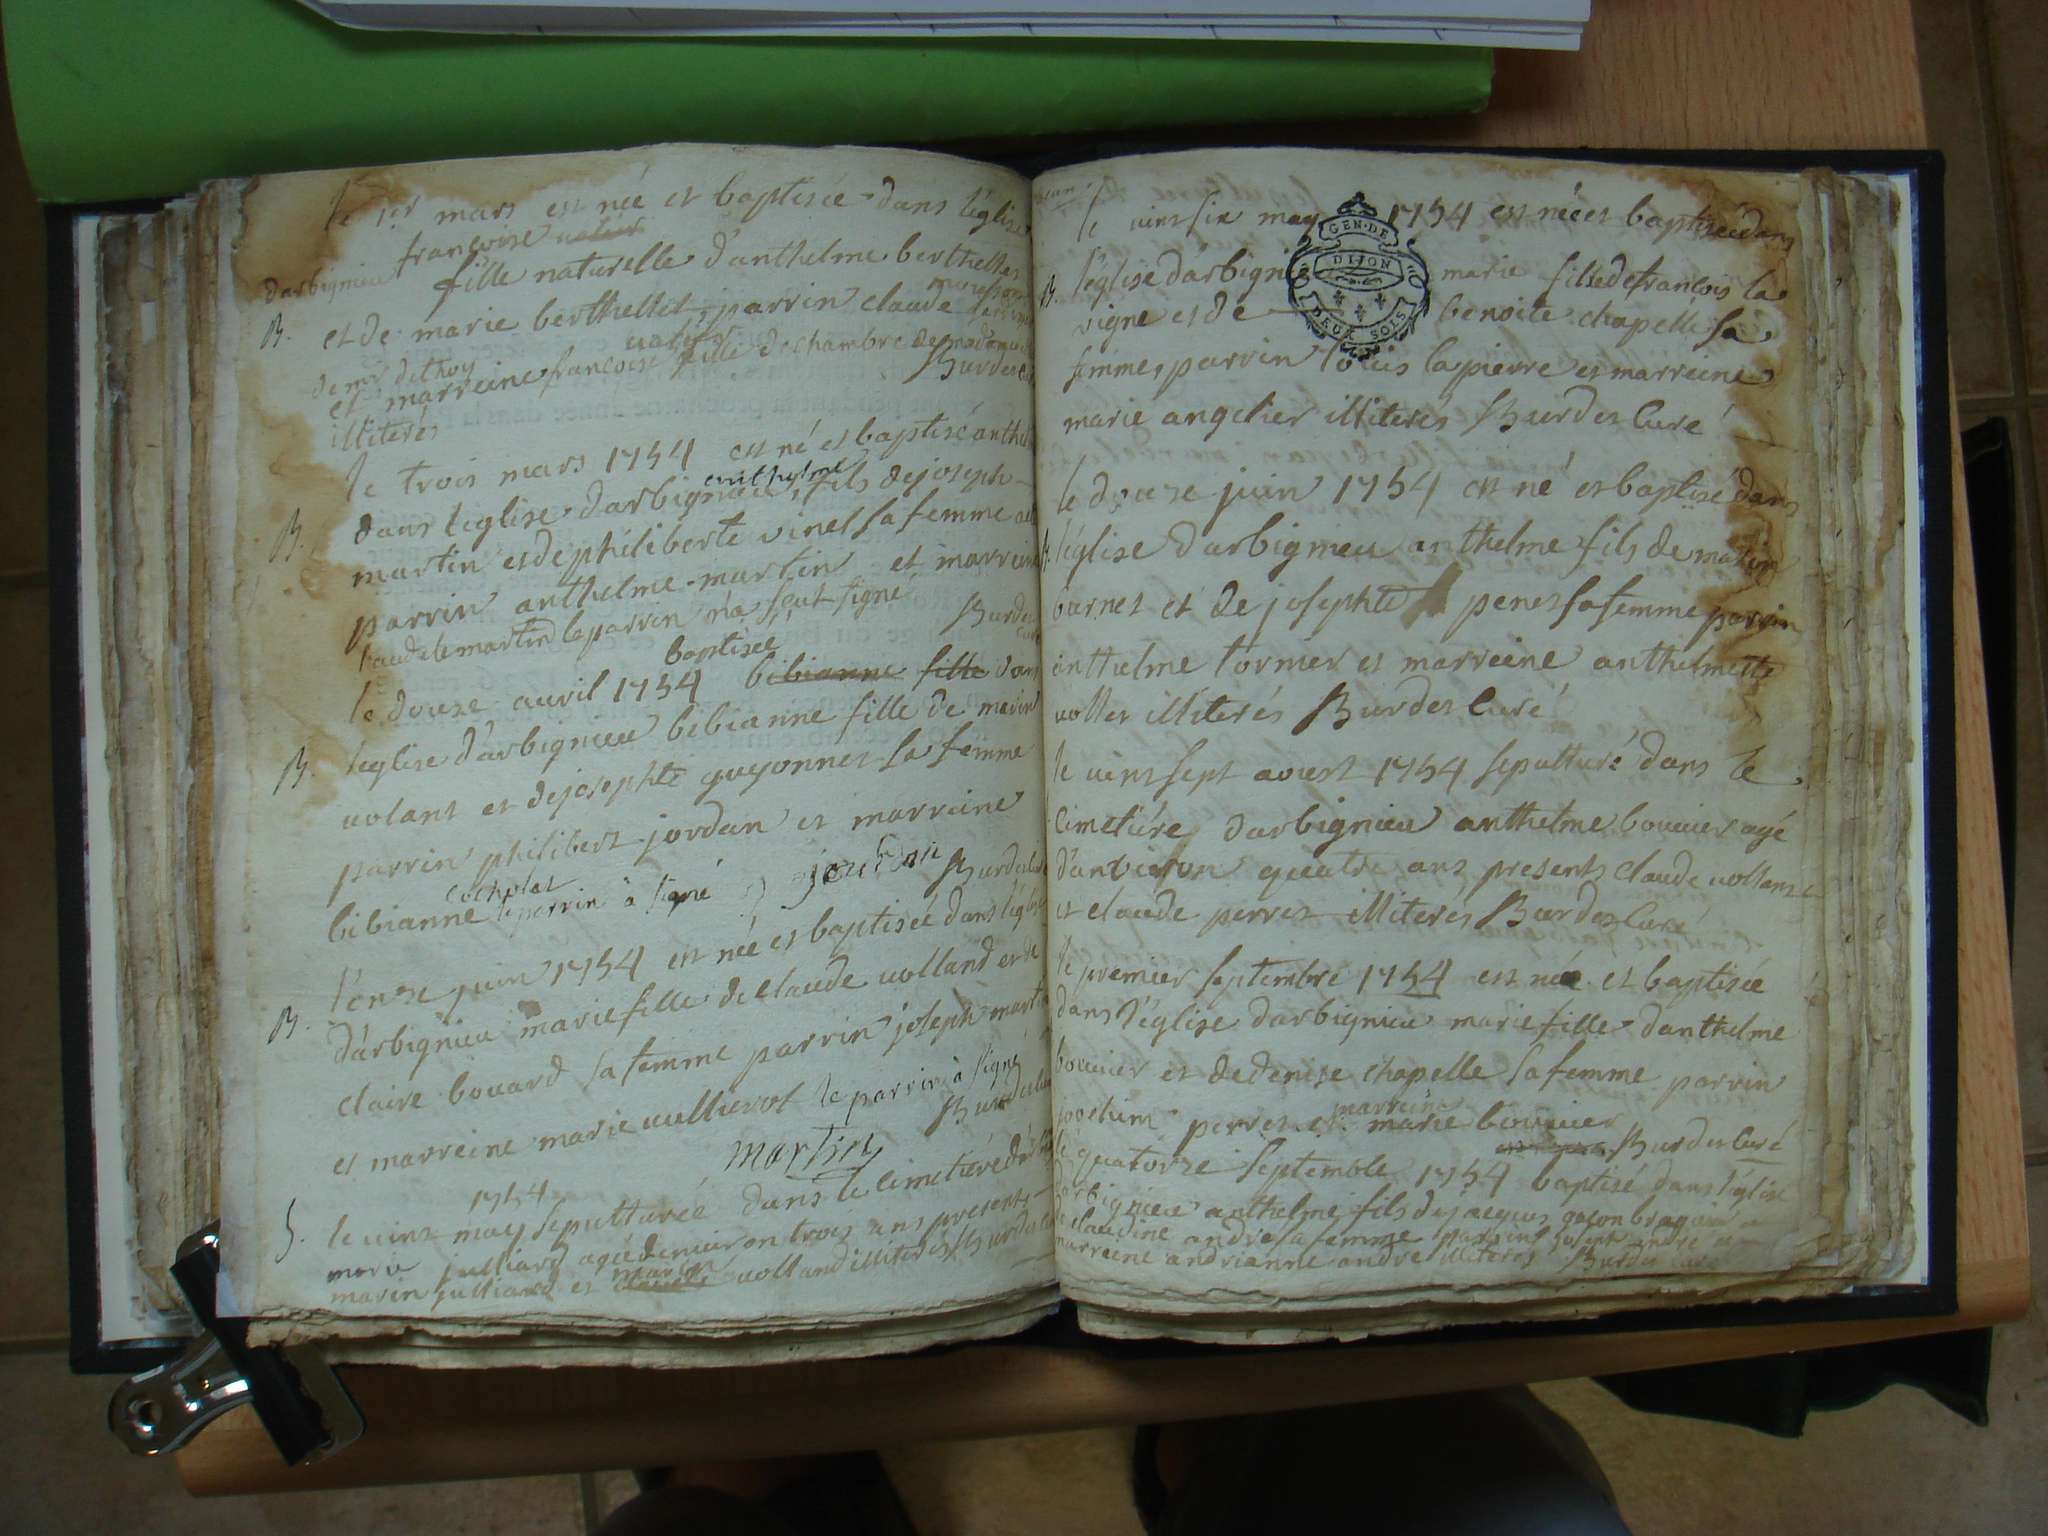 le 1er mars est née et baptisée dans l'église
darbignieu françoise
fille naturelle d'anthelme berthellet
B. et de marie berthellet, parrin claude
de mr dethoy
et marreine françoise fille de chambre de madame
illiterés Burdet
le trois mars 1754 est né et baptisé
anthelme
B. dans leglise darbignieu, fils de joseph
martin et de philiberte vinet sa femme
parrin anthelme martin et marreine
le parrin n'a sçut signé Burdet
baptisée
le douze avril 1754 bibianne fille dans
B. leglise d'arbignieu bibianne fille de marin
volant et de josephte guyonnet sa femme
parrin philibert jordan et marreine
bibianne cocholat le parrin à signé jourdan Burdet curé
l'onze juin 1754 est née et baptisée dans leglise
B. d'arbignieu marie fille de claude volland et de
claire bouard sa femme parrin joseph martin
et marreine marie vullierot le parrin à signé
martin Burdet
1754
S. le vint may sepulturée dans le cimetiére
marie julliard agée denviron trois ans presents
marin julliard et volland illiterés Burdet
le vint six may 1754 est née et baptisée dans
B. l'église d'arbignieu marie fille de françois la
vigne et de benoite chapelle sa
femme, parrin louis lapierre et marreine
marie angelier illiterés Burdet Curé
le douze juin 1754 est né et baptisé dans
B. l'église darbignieu anthelme fils de marin
burnet et de josephte penet sa femme parrin
anthelme tormer et marreine anthelmette
vollet illiterés Burdet Curé
le vint sept aoust 1754 sepulturé dans le
Cimetiére darbignieu anthelme bouvier agé
d'anviron quatre ans presents claude vollant
et claude perret illiterés Burdet Curé
le premier septembre 1754 est née et baptisée
dans l'église darbignieu marie fille danthelme
bouvier et de denise chapelle sa femme parrin
joochim perret et marreine marie bouvier
Burdet Curé
le quatorze septembre 1754 baptisé dans l'église
darbignieu anthelme fils de jacques
de claudine andre sa femme parrin
marreine andrianne andre illiteres Burdet curé
GEN·DE
DIJON
DEUX SOLS